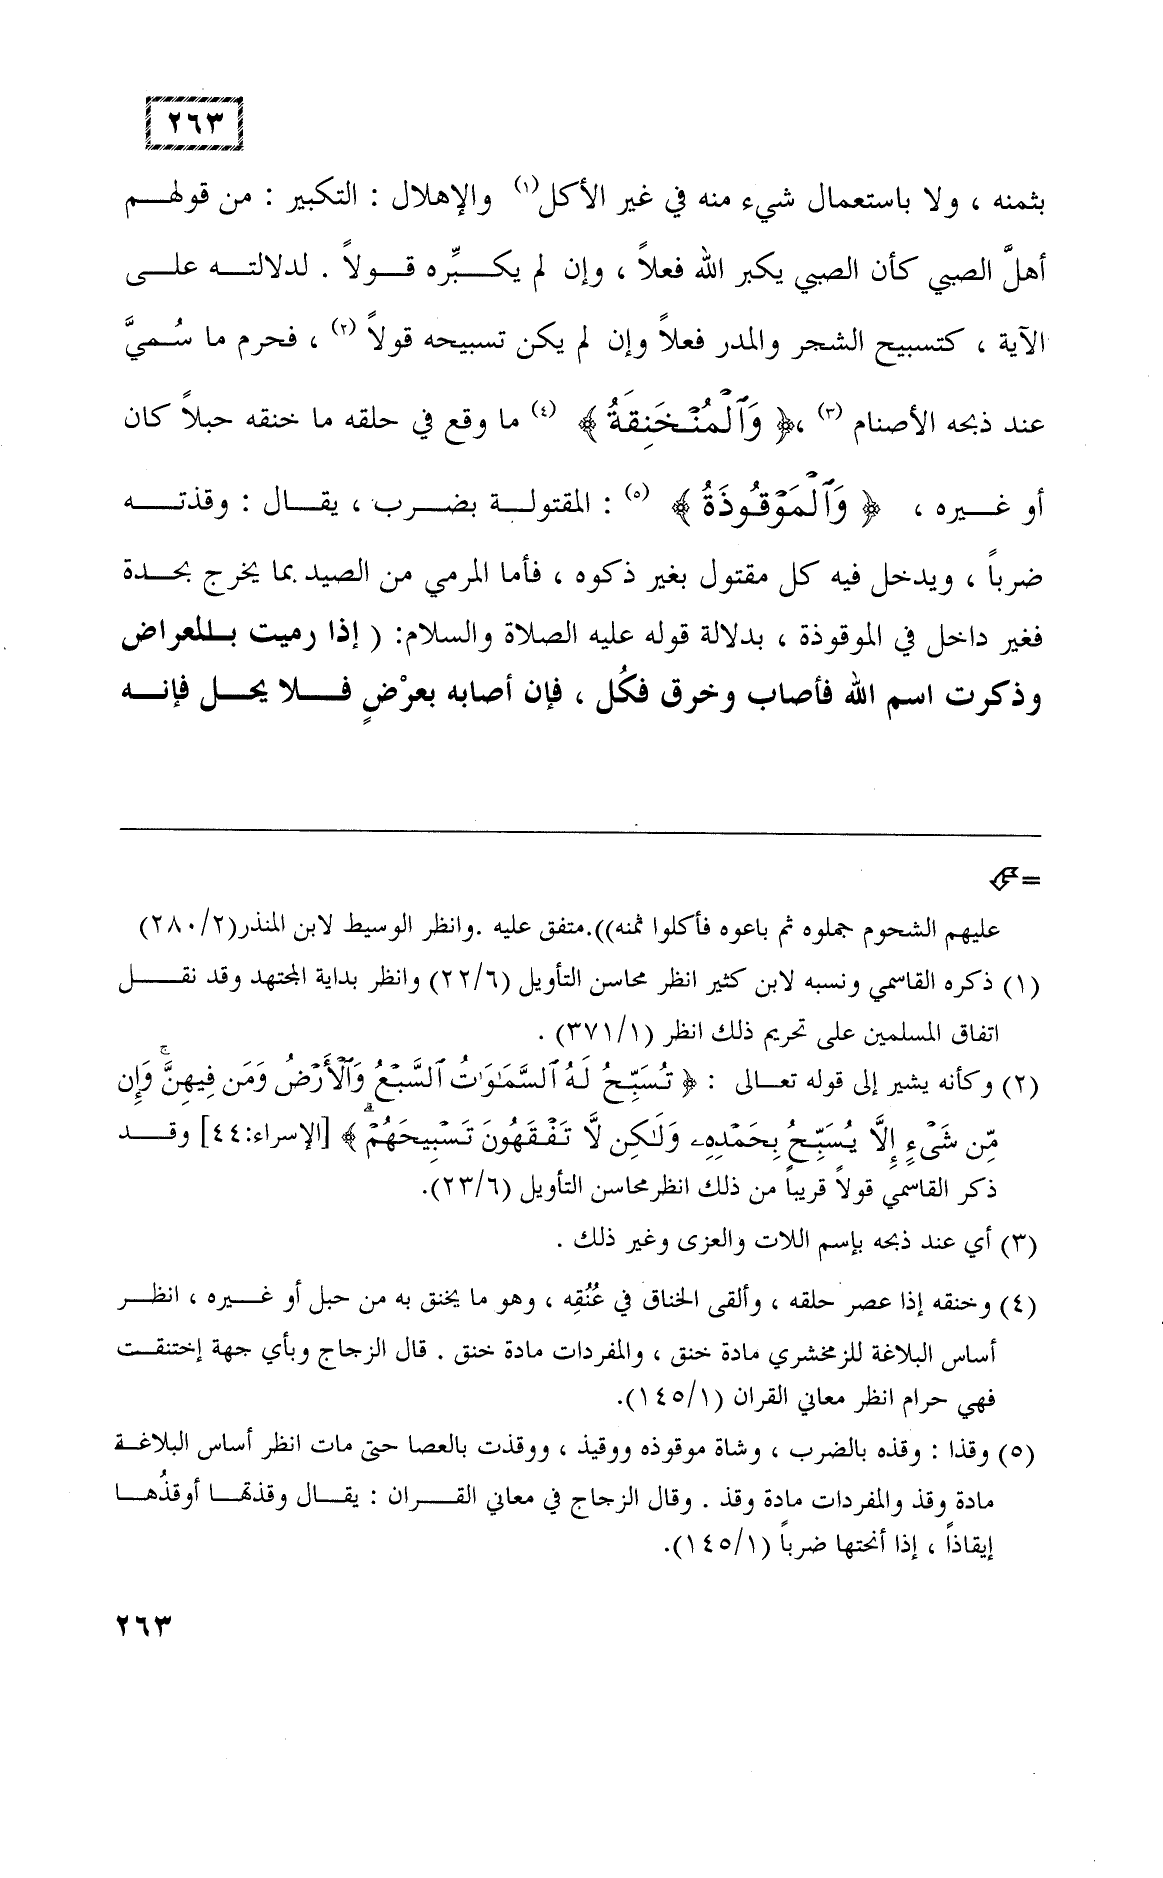 ٢٦٣
بثمنه ، ولا باستعمال شيء منه في غير الأكل(١) والإهلال : التكبير : من قولهم
أهلَّ الصبي كأن الصبي يكبر الله فعلاً ، وإن لم يكبِّره قولاً . لدلالته على
الآية ، كتسبيح الشجر والمدر فعلاً وإن لم يكن تسبيحه قولاً (٢) ، فحرم ما سُميَّ
عند ذبحه الأصنام (٣) ،﴿ وَٱلْمُنْخَنِقَةُ ﴾ (٤) ما وقع في حلقه ما خنقه حبلاً كان
أو غيره ، ﴿ وَٱلْمَوْقُوذَةُ ﴾ (٥) : المقتولة بضرب ، يقال : وقذته
ضرباً ، ويدخل فيه كل مقتول بغير ذكوه ، فأما المرمي من الصيد بما يخرج بحدة
فغير داخل في الموقوذة ، بدلالة قوله عليه الصلاة والسلام: ( إذا رميت بللعراض
وذكرت اسم الله فأصاب وخرق فكُل ، فإن أصابه بعرْضٍ فلا يحل فإنه
=
عليهم الشحوم جملوه ثم باعوه فأكلوا ثمنه)).متفق عليه .وانظر الوسيط لابن المنذر(٢٨٠/٢)
(١) ذكره القاسمي ونسبه لابن كثير انظر محاسن التأويل (٢٢/٦) وانظر بداية المجتهد وقد نقل
اتفاق المسلمين على تحريم ذلك انظر (٣٧١/١) .
(٢) وكأنه يشير إلى قوله تعالى : ﴿ تُسَبِّحُ لَهُ ٱلسَّمَٰوَٰتُ ٱلسَّبْعُ وَٱلْأَرْضُ وَمَن فِيهِنَّ ۚ وَإِن
مِّن شَىْءٍ إِلَّا يُسَبِّحُ بِحَمْدِهِۦ وَلَٰكِن لَّا تَفْقَهُونَ تَسْبِيحَهُمْ ۗ ﴾ [الإسراء:٤٤] وقد
ذكر القاسمي قولاً قريباً من ذلك انظر محاسن التأويل (٢٣/٦).
(٣) أي عند ذبحه بإسم اللات والعزى وغير ذلك .
(٤) وخنقه إذا عصر حلقه ، وألقى الخناق في عُنُقِه ، وهو ما يخنق به من حبل أو غيره ، انظر
أساس البلاغة للزمخشري مادة خنق ، والمفردات مادة خنق . قال الزجاج وبأي جهة إختنقت
فهي حرام انظر معاني القران (١٤٥/١).
(٥) وقذا : وقذه بالضرب ، وشاة موقوذه ووقيذ ، ووقذت بالعصا حتى مات انظر أساس البلاغة
مادة وقذ والمفردات مادة وقذ . وقال الزجاج في معاني القران : يقال وقذتها أوقذُها
إيقاذاً ، إذا أثخنتها ضرباً (١٤٥/١).
٢٦٣